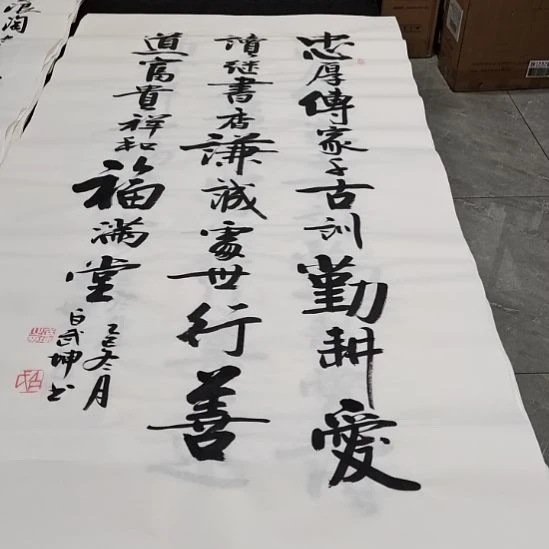 忠厚傳家千古訓勤耕愛
讀继書香謙誠處世行善
道富貴祥和福满堂
乙巳冬月
白武坤书
浪淘